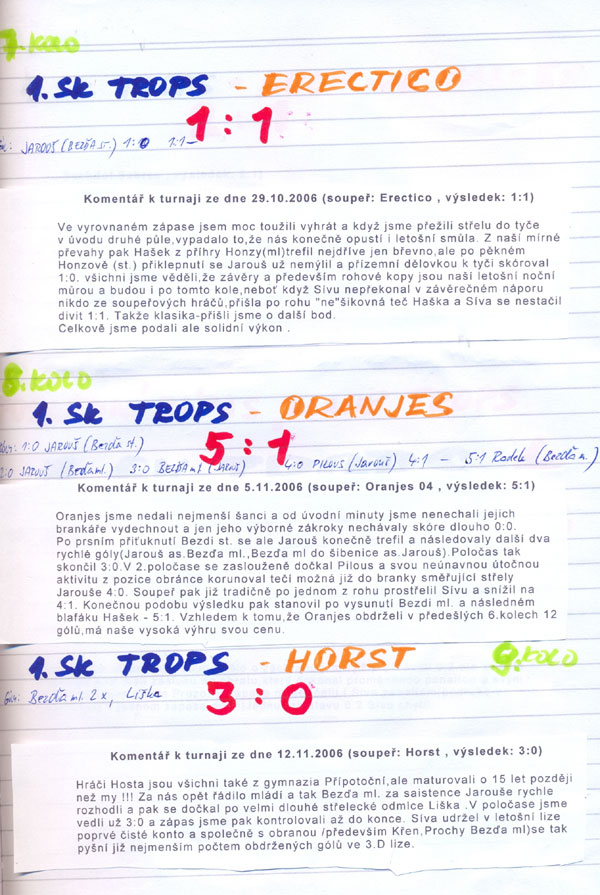 7. KOLO
1. SK TROPS - ERECTICO
1:1
JAROUŠ (BEZĎA ST.) 1:0 1:1 -
Komentář k turnaji ze dne 29.10.2006 (soupeř: Erectico , výsledek: 1:1)
Ve vyrovnaném zápase jsem moc toužili vyhrát a když jsme přežili střelu do tyče
v úvodu druhé půle,vypadalo to,že nás konečně opustí i letošní smůla. Z naší mírné
převahy pak Hašek z příhry Honzy(ml)trefil nejdříve jen břevno,ale po pěkném
Honzově (st.) přiklepnutí se Jarouš už nemýlil a přízemní dělovkou k tyči skóroval
1:0. všichni jsme věděli,že závěry a především rohové kopy jsou naší letošní noční
můrou a budou i po tomto kole,neboť když Sívu nepřekonal v závěrečném náporu
nikdo ze soupeřových hráčů,přišla po rohu "ne"šikovná teč Haška a Síva se nestačil
divit 1:1. Takže klasika-přišli jsme o další bod.
Celkově jsme podali ale solidní výkon .
8. KOLO
1. SK TROPS - ORANJES
5:1
1:0 JAROUŠ (Bezďa st.)
2:0 JAROUŠ (Bezďa ml.) 3:0 BEZĎA ml (Jarouš) 4:0 PILOUS (Jarouš) 4:1 - 5:1 Radek (Bezďa m.)
Komentář k turnaji ze dne 5.11.2006 (soupeř: Oranjes 04 , výsledek: 5:1)
Oranjes jsme nedali nejmenší šanci a od úvodní minuty jsme nenechali jejich
brankáře vydechnout a jen jeho výborné zákroky nechávaly skóre dlouho 0:0.
Po prsním přiťuknutí Bezdi st. se ale Jarouš konečně trefil a následovaly další dva
rychlé góly(Jarouš as.Bezďa ml.,Bezďa ml do šibenice as.Jarouš).Poločas tak
skončil 3:0.V 2.poločase se zaslouženě dočkal Pilous a svou neúnavnou útočnou
aktivitu z pozice obránce korunoval tečí možná již do branky směřující střely
Jarouše 4:0. Soupeř pak již tradičně po jednom z rohu prostřelil Sívu a snížil na
4:1. Konečnou podobu výsledku pak stanovil po vysunutí Bezdi ml. a následném
blafáku Hašek - 5:1. Vzhledem k tomu,že Oranjes obdrželi v předešlých 6.kolech 12
gólů,má naše vysoká výhru svou cenu.
1. SK TROPS - HORST
9. KOLO
3:0
Góly: Bezďa ml. 2x, Liška
Komentář k turnaji ze dne 12.11.2006 (soupeř: Horst , výsledek: 3:0)
Hráči Hosta jsou všichni také z gymnazia Přípotoční,ale maturovali o 15 let později
než my !!! Za nás opět řádilo mládí a tak Bezďa ml. za saistence Jarouše rychle
rozhodli a pak se dočkal po velmi dlouhé střelecké odmlce Liška .V poločase jsme
vedli už 3:0 a zápas jsme pak kontrolovali až do konce. Síva udržel v letošní lize
poprvé čisté konto a společně s obranou /především Křen,Prochy Bezďa ml)se tak
pyšní již nejmenším počtem obdržených gólů ve 3.D lize.